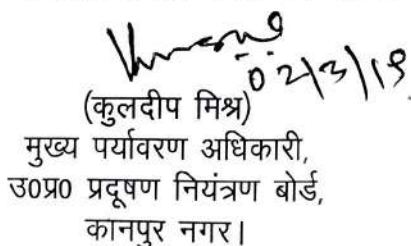 02/3/19
(कुलदीप मिश्र)
मुख्य पर्यावरण अधिकारी,
उ0प्र0 प्रदूषण नियंत्रण बोर्ड,
कानपुर नगर।